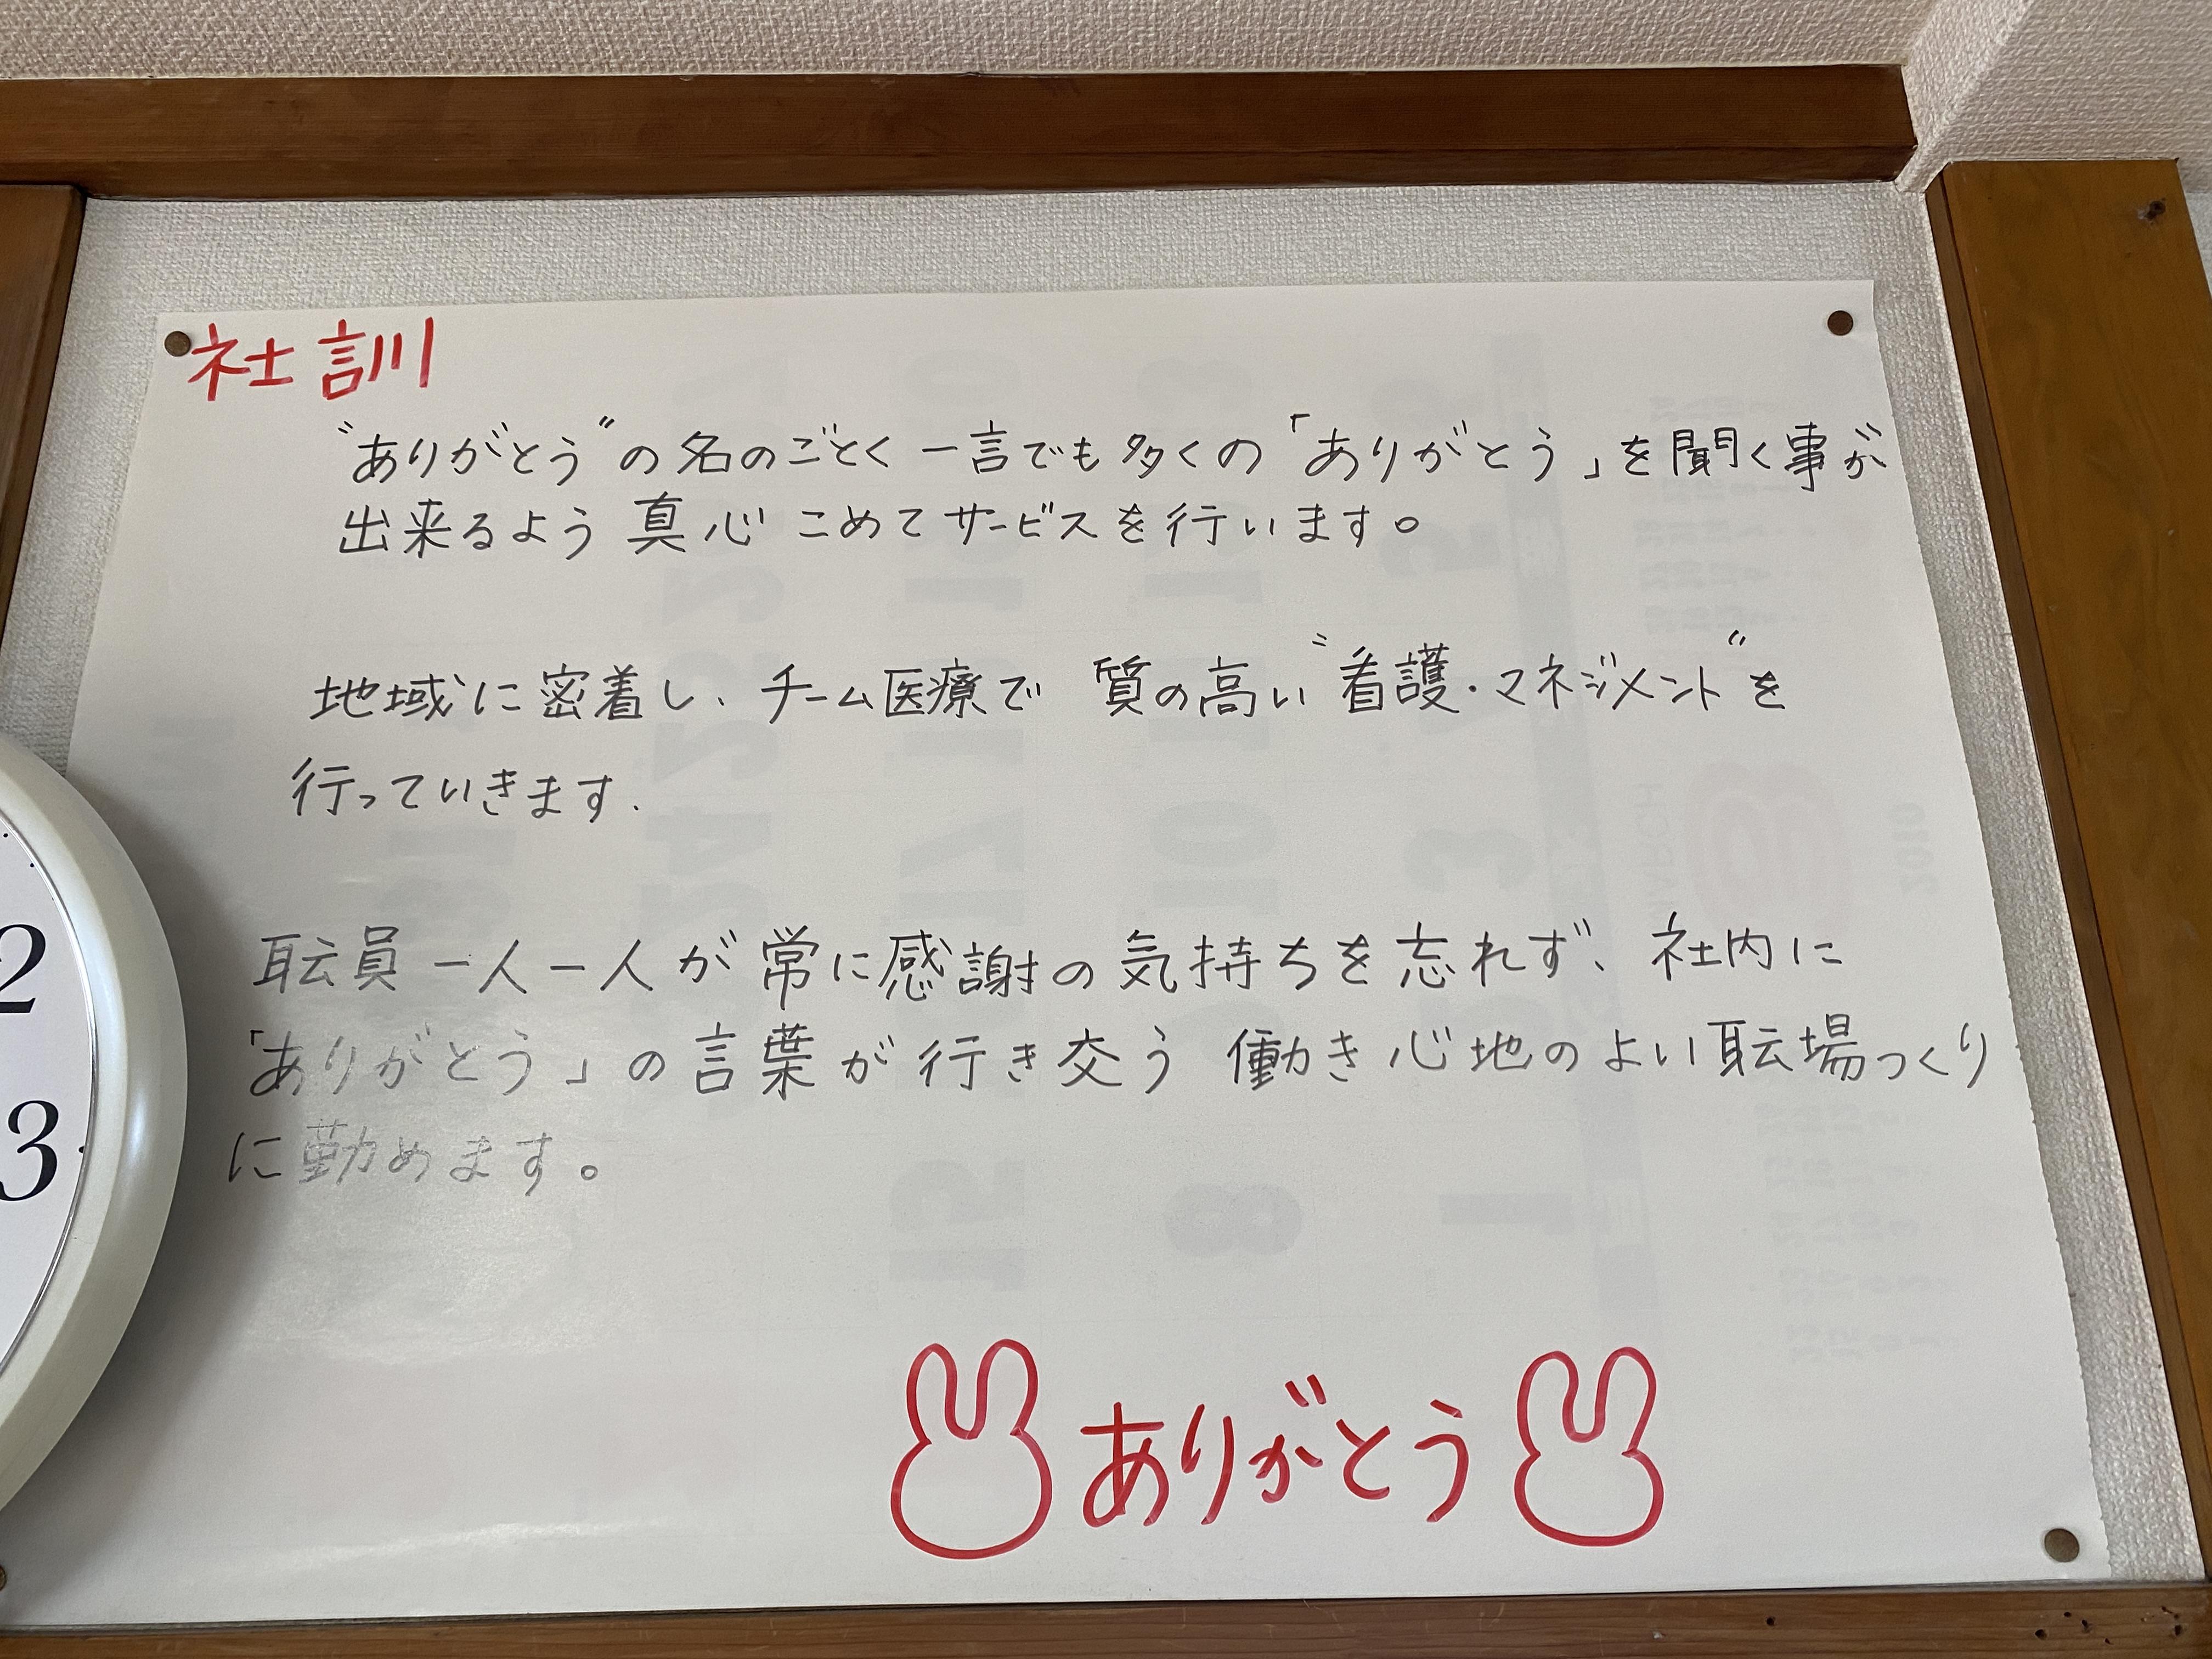 社訓
"ありがとう"の名のごとく一言でも多くの「ありがとう」を聞く事が
出来るよう真心こめてサービスを行います。
地域に密着し、チーム医療で 質の高い"看護・マネジメント"を
行っていきます.
耺員一人一人が常に感謝の気持ちを忘れず、社内に
「ありがとう」の言葉が行き交う 働き心地のよい耺場つくり
に勤めます。
ありがとう
2
3